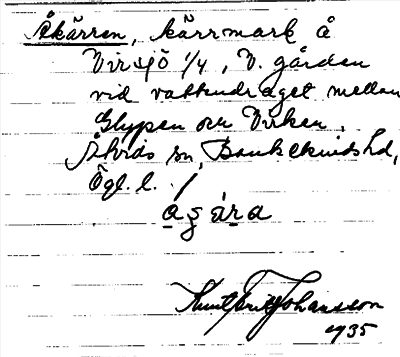 Åkärren, kärrmark å
Virsjö 1/4, V. gården
vid vattendraget mellan
Glypen och Virken.
Åtvids sn, Bankekinds hd,
Ögl. l.
Knut Erik Johansson
1935